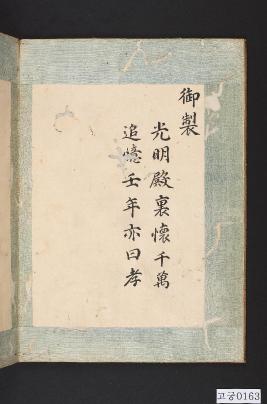 御製
光明殿裏懷千萬
追憶壬年亦曰孝
고궁0163